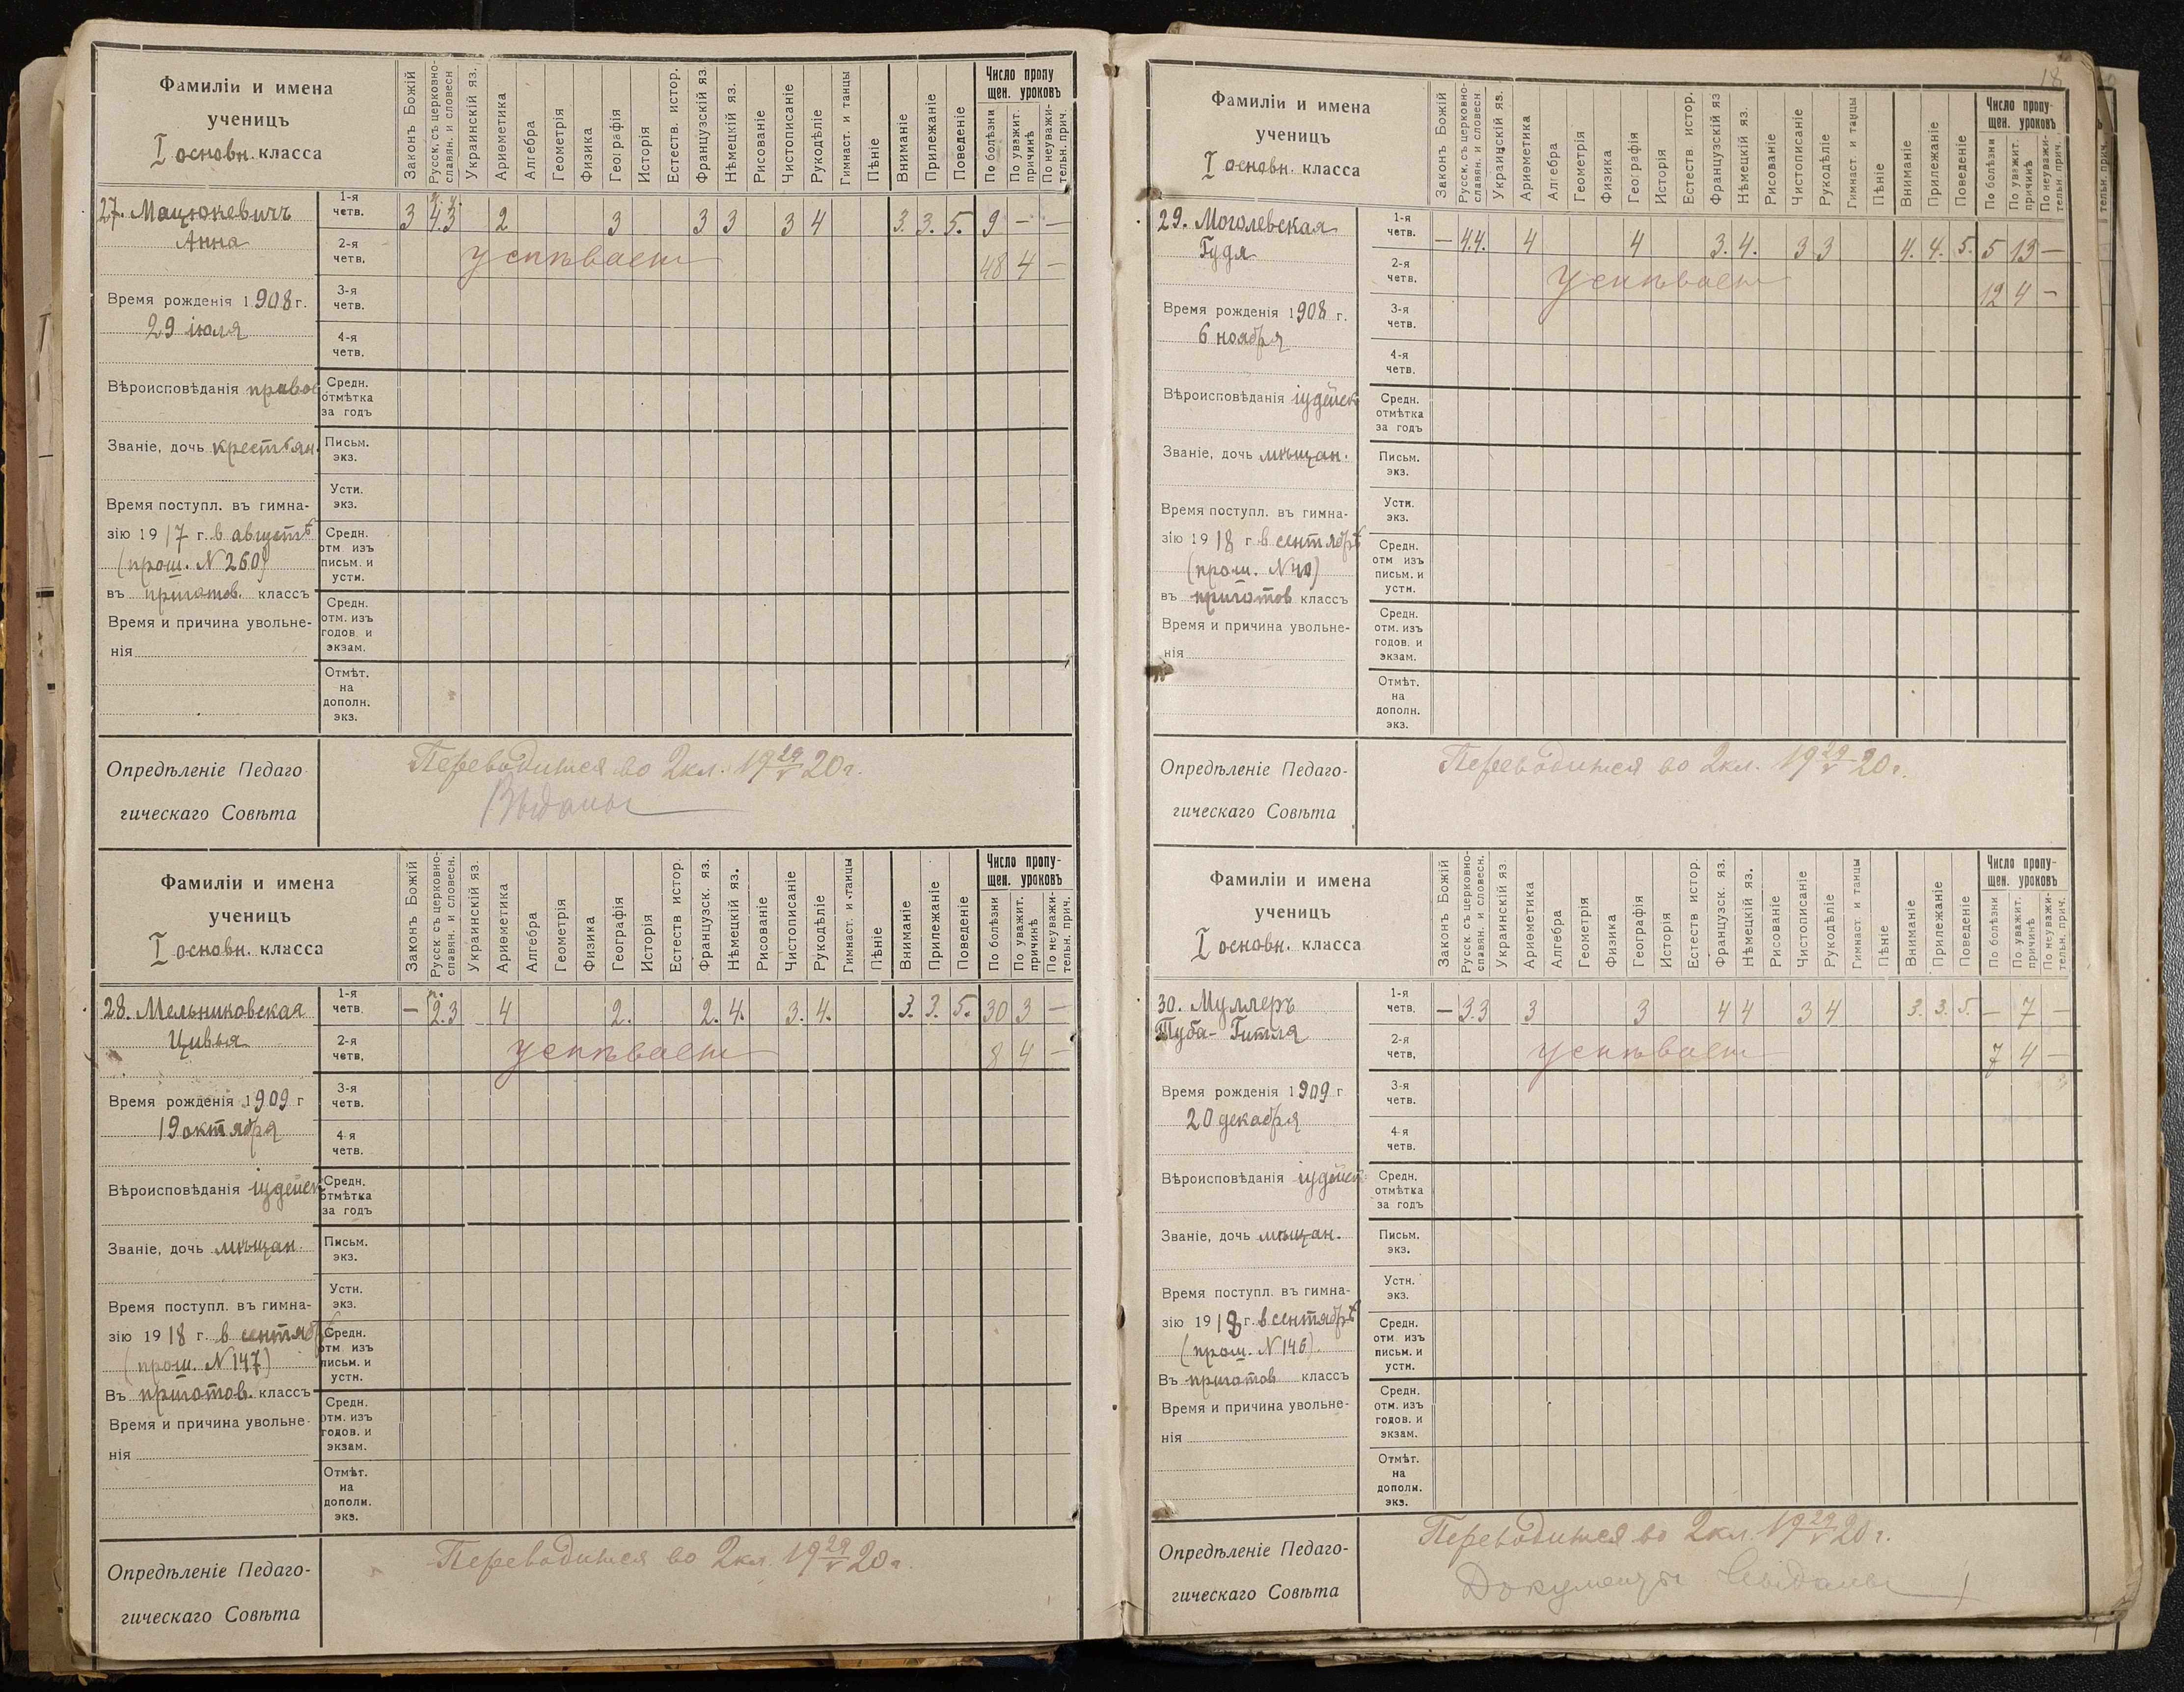 Фамиліи и имена
ученицъ
I основн. класса
Законъ Божій
Русск. съ церковно-
славян. и словесн
Украинскій яз.
Ариѳметика
Алгебра
Геометрія
Физика
Географія
Исторія
Естеств. истор.
Французскій яз
Нѣмецкій яз.
Рисованіе
Чистописаніе
Рукодѣліе
Гимнаст. и танцы
Пѣніе
Вниманіе
Прилежаніе
Поведеніе
Число пропу
щен. уроковъ
По болѣзни
По уважит.
причинѣ
По неуважи-
тельн. прич.
27. Мацюкевичъ
Анна
1-я
четв.
3 4.3 2 3 3 3 3 4 3. 3. 5. 9 — —
2-я
четв.
успѣваетъ 48 4 —
Время рожденія 1908 г.
29 іюля
3-я
четв.
4-я
четв.
Вѣроисповѣданія правос
Средн.
отмѣтка
за годъ
Званіе, дочь крестьян.
Письм.
экз.
Устн.
экз.
Время поступл. въ гимна-
зію 1917 г. в августѣ
(прош. N 260)
въ приготов. классъ
Средн.
отм изъ
письм. и
устн.
Время и причина увольне-
нія
Средн.
отм. изъ
годов и
экзам.
Отмѣт.
на
дополн.
экз.
Опредѣленіе Педаго
гическаго Совѣта
Переводится во 2 кл. 19 29/V 20 г.
Выданы
Фамиліи и имена
ученицъ
I основн. класса
Законъ Божій
Русск съ церковно-
славян. и словесн.
Украинскій яз.
Ариѳметика
Алгебра
Геометрія
Физика
Географія
Исторія
Естеств истор.
Французск. яз.
Нѣмецкій яз.
Рисованіе
Чистописаніе
Рукодѣліе
Гимнаст. и танцы
Пѣніе
Вниманіе
Прилежаніе
Поведеніе
Число пропу-
щен. уроковъ
По болѣзни
По уважит.
причинѣ
По неуважи-
тельн. прич.
28. Мельниковская
Цивья
1-я
четв.
— 2.3 4 2. 2. 4. 3. 4. 3. 3. 5. 30 3 —
2-я
четв,
успѣваетъ 8 4 —
Время рожденія 1909 г
19 октября
3-я
четв.
4-я
четв.
Вѣроисповѣданія іудейск
Средн.
отмѣтка
за годъ
Званіе, дочь мѣщан.
Письм.
экз.
Устн.
экз.
Время поступл. въ гимна-
зію 1918 г. в сентябрѣ
(прош. N 147)
Въ приготов. классъ
Средн.
отм изъ
письм. и
устн.
Время и причина увольне
нія
Средн.
отм. изъ
годов. и
экзам.
Отмѣт.
на
дополн.
экз.
Опредѣленіе Педаго-
гическаго Совѣта
Переводится во 2 кл. 19 29/V 20 г.
18
Фамиліи и имена
ученицъ
I основн. класса
Законъ Божій
Русск. съ церковно-
славян. и словесн
Украинскій яз.
Ариѳметика
Алгебра
Геометрія
Физика
Географія
Исторія
Естеств. истор.
Французскій яз
Нѣмецкій яз.
Рисованіе
Чистописаніе
Рукодѣліе
Гимнаст. и танцы
Пѣніе
Вниманіе
Прилежаніе
Поведеніе
Число пропу-
щен. уроковъ
По болѣзни
По уважит.
причинѣ
По неуважи-
тельн. прич.
29. Моголевская
Гудя
1-я
четв.
— 4.4. 4 4 3. 4. 3 3 4. 4. 5. 5 13 —
2-я
четв.
успѣваетъ 12 4 —
Время рожденія 1908 г.
6 ноября
3-я
четв.
4-я
четв.
Вѣроисповѣданія іудейск
Средн.
отмѣтка
за годъ
Званіе, дочь мѣщан.
Письм.
экз.
Устн.
экз.
Время поступл. въ гимна-
зію 1918 г в сентябрѣ
(прош. N 40)
въ приготов классъ
Средн.
отм изъ
письм. и
устн.
Время и причина увольне-
нія
Средн.
отм. изъ
годов. и
экзам.
Отмѣт.
на
дополн.
экз.
Опредѣленіе Педаго-
гическаго Совѣта
Переводится во 2 кл. 19 29/V 20 г.
Фамиліи и имена
ученицъ
I основн. класса
Законъ Божій
Русск съ церковно-
славян. и словесн.
Украинскій яз
Ариѳметика
Алгебра
Геометрія
Физика
Географія
Исторія
Естеств истор.
Французск. яз.
Нѣмецкій яз.
Рисованіе
Чистописаніе
Рукодѣліе
Гимнаст. и танцы
Пѣніе
Вниманіе
Прилежаніе
Поведеніе
Число пропу-
щен. уроковъ
По болѣзни
По уважит.
причинѣ
По неуважи-
тельн. прич.
30. Муллеръ
Туба-Гитля
1-я
четв.
— 3.3 3 3 4 4 3 4 3. 3. 5. — 7 —
2-я
четв,
успѣваетъ 7 4 —
Время рожденія 1909 г
20 декабря
3-я
четв.
4-я
четв.
Вѣроисповѣданія іудейск
Средн.
отмѣтка
за годъ
Званіе, дочь мѣщан.
Письм.
экз.
Устн.
экз.
Время поступл. въ гимна-
зію 1918 г. в сентябрѣ
(прош. N 146).
Въ приготов классъ
Средн.
отм изъ
письм. и
устн.
Время и причина увольне-
нія
Средн.
отм. изъ
годов. и
экзам.
Отмѣт.
на
дополн.
экз.
Опредѣленіе Педаго-
гическаго Совѣта
Переводится во 2 кл. 19 29/V 20 г.
Документы выданы